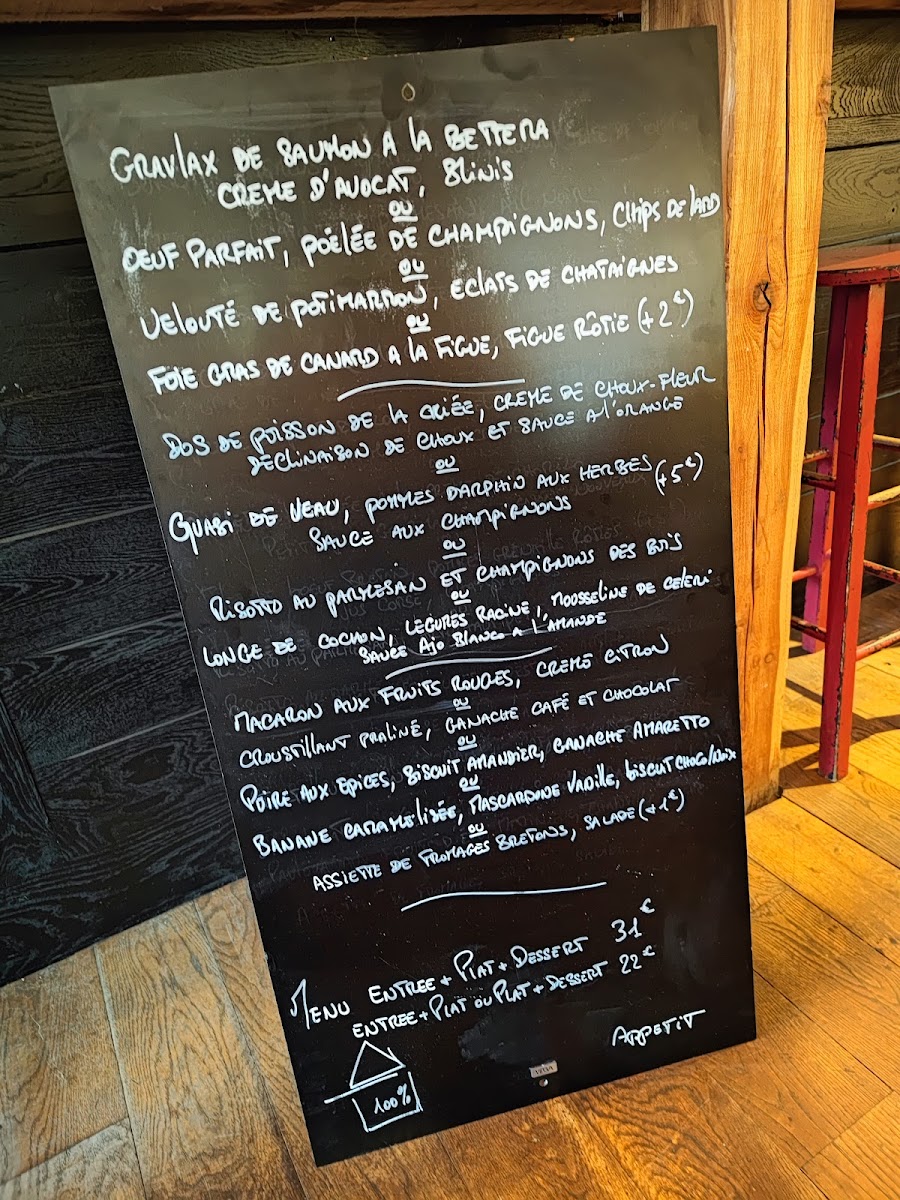 GRAVLAX DE SAUMON A LA BETTERA
CREME D'AVOCAT, BLINIS
OU
OEUF PARFAIT, POÊLÉE DE CHAMPIGNONS, CHIPS DE LARD
OU
VELOUTÉ DE POTIMARRON, ECLATS DE CHATAIGNES
OU
FOIE GRAS DE CANARD A LA FIGUE, FIGUE RÔTIE (+2€)
DOS DE POISSON DE LA CRIÉE, CREME DE CHOUX-FLEUR
DECLINAISON DE CHOUX ET SAUCE A L'ORANGE
OU
QUASI DE VEAU, POMMES DARPHIN AUX HERBES (+5€)
SAUCE AUX CHAMPIGNONS
OU
RISOTTO AU PARMESAN ET CHAMPIGNONS DES BOIS
OU
LONGE DE COCHON, LEGUMES RACINE, MOUSSELINE DE CELERI
SAUCE AJO BLANCO A L'AMANDE
MACARON AUX FRUITS ROUGES, CREME CITRON
OU
CROUSTILLANT PRALINÉ, GANACHE CAFÉ ET CHOCOLAT
OU
POIRE AUX EPICES, BISCUIT AMANDIER, GANACHE AMARETTO
OU
BANANE CARAMELISÉE, MASCARPONE VANILLE, BISCUIT CHOCO/NOIX
OU
ASSIETTE DE FROMAGES BRETONS, SALADE (+1€)
MENU ENTREE + PLAT + DESSERT 31€
ENTREE + PLAT OU PLAT + DESSERT 22€
APPETIT
100%